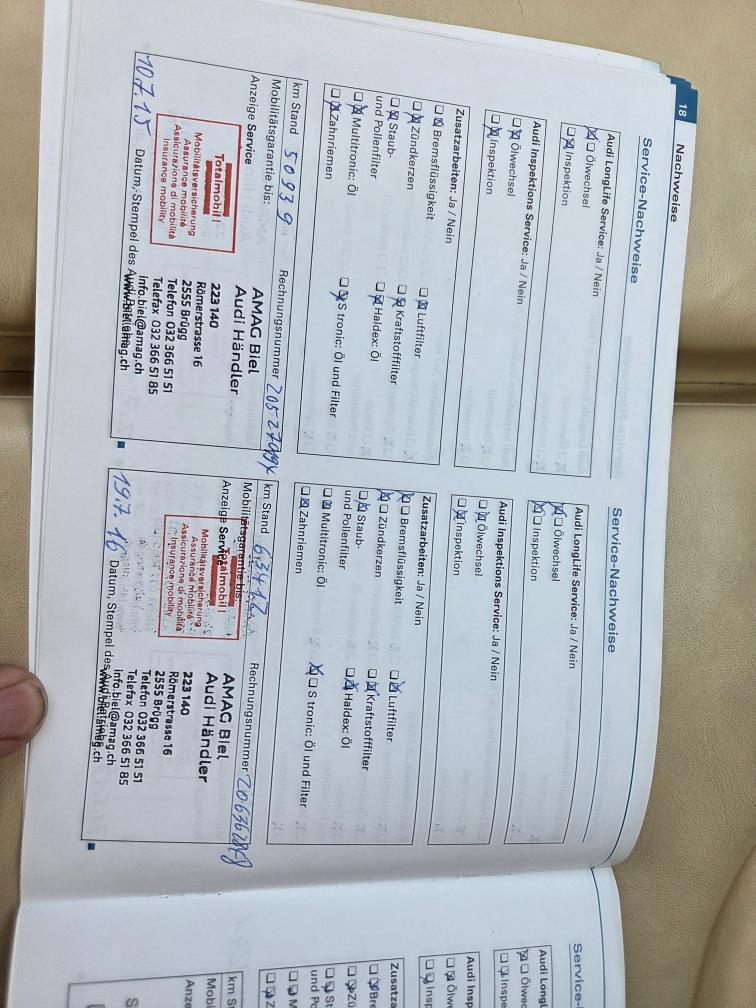 18
Nachweise
Service-Nachweise
Audi LongLife Service: Ja / Nein
Ölwechsel
Inspektion
Audi Inspektions Service: Ja / Nein
Ölwechsel
Inspektion
Zusatzarbeiten: Ja / Nein
Bremsflüssigkeit
Luftfilter
Zündkerzen
Kraftstofffilter
Staub-
und Pollenfilter
Haldex: Öl
Multitronic: Öl
S tronic: Öl und Filter
Zahnriemen
km Stand 50939
Rechnungsnummer
Mobilitätsgarantie bis:
Anzeige Service
AMAG Biel
Audi Händler
223 140
Römerstrasse 16
2555 Brügg
Telefon 032 366 51 51
Telefax 032 366 51 85
Info.biel@amag.ch
www.biel.amag.ch
Totalmobil!
Mobilitätsversicherung
Assurance mobilité
Assicurazione di mobilità
Insurance mobility
10.7.15
Datum, Stempel des Audi
Service-Nachweise
Audi LongLife Service: Ja / Nein
Ölwechsel
Inspektion
Audi Inspektions Service: Ja / Nein
Ölwechsel
Inspektion
Zusatzarbeiten: Ja / Nein
Bremsflüssigkeit
Luftfilter
Zündkerzen
Kraftstofffilter
Staub-
und Pollenfilter
Haldex: Öl
Multitronic: Öl
S tronic: Öl und Filter
Zahnriemen
km Stand
Rechnungsnummer
Mobilitätsgarantie bis
Anzeige Service
AMAG Biel
Audi Händler
223 140
Römerstrasse 16
2555 Brügg
Telefon 032 366 51 51
Telefax 032 366 51 85
Info.biel@amag.ch
www.biel.amag.ch
Totalmobil!
Mobilitätsversicherung
Assurance mobilité
Assicurazione di mobilità
Insurance mobility
19.7.16
Datum, Stempel des
Service-
Audi Long
Ölwe
Insp
Audi Insp
Ölw
Insp
Zusatza
Bre
Zü
St
und Po
M
Z
km S
Mobi
Anze